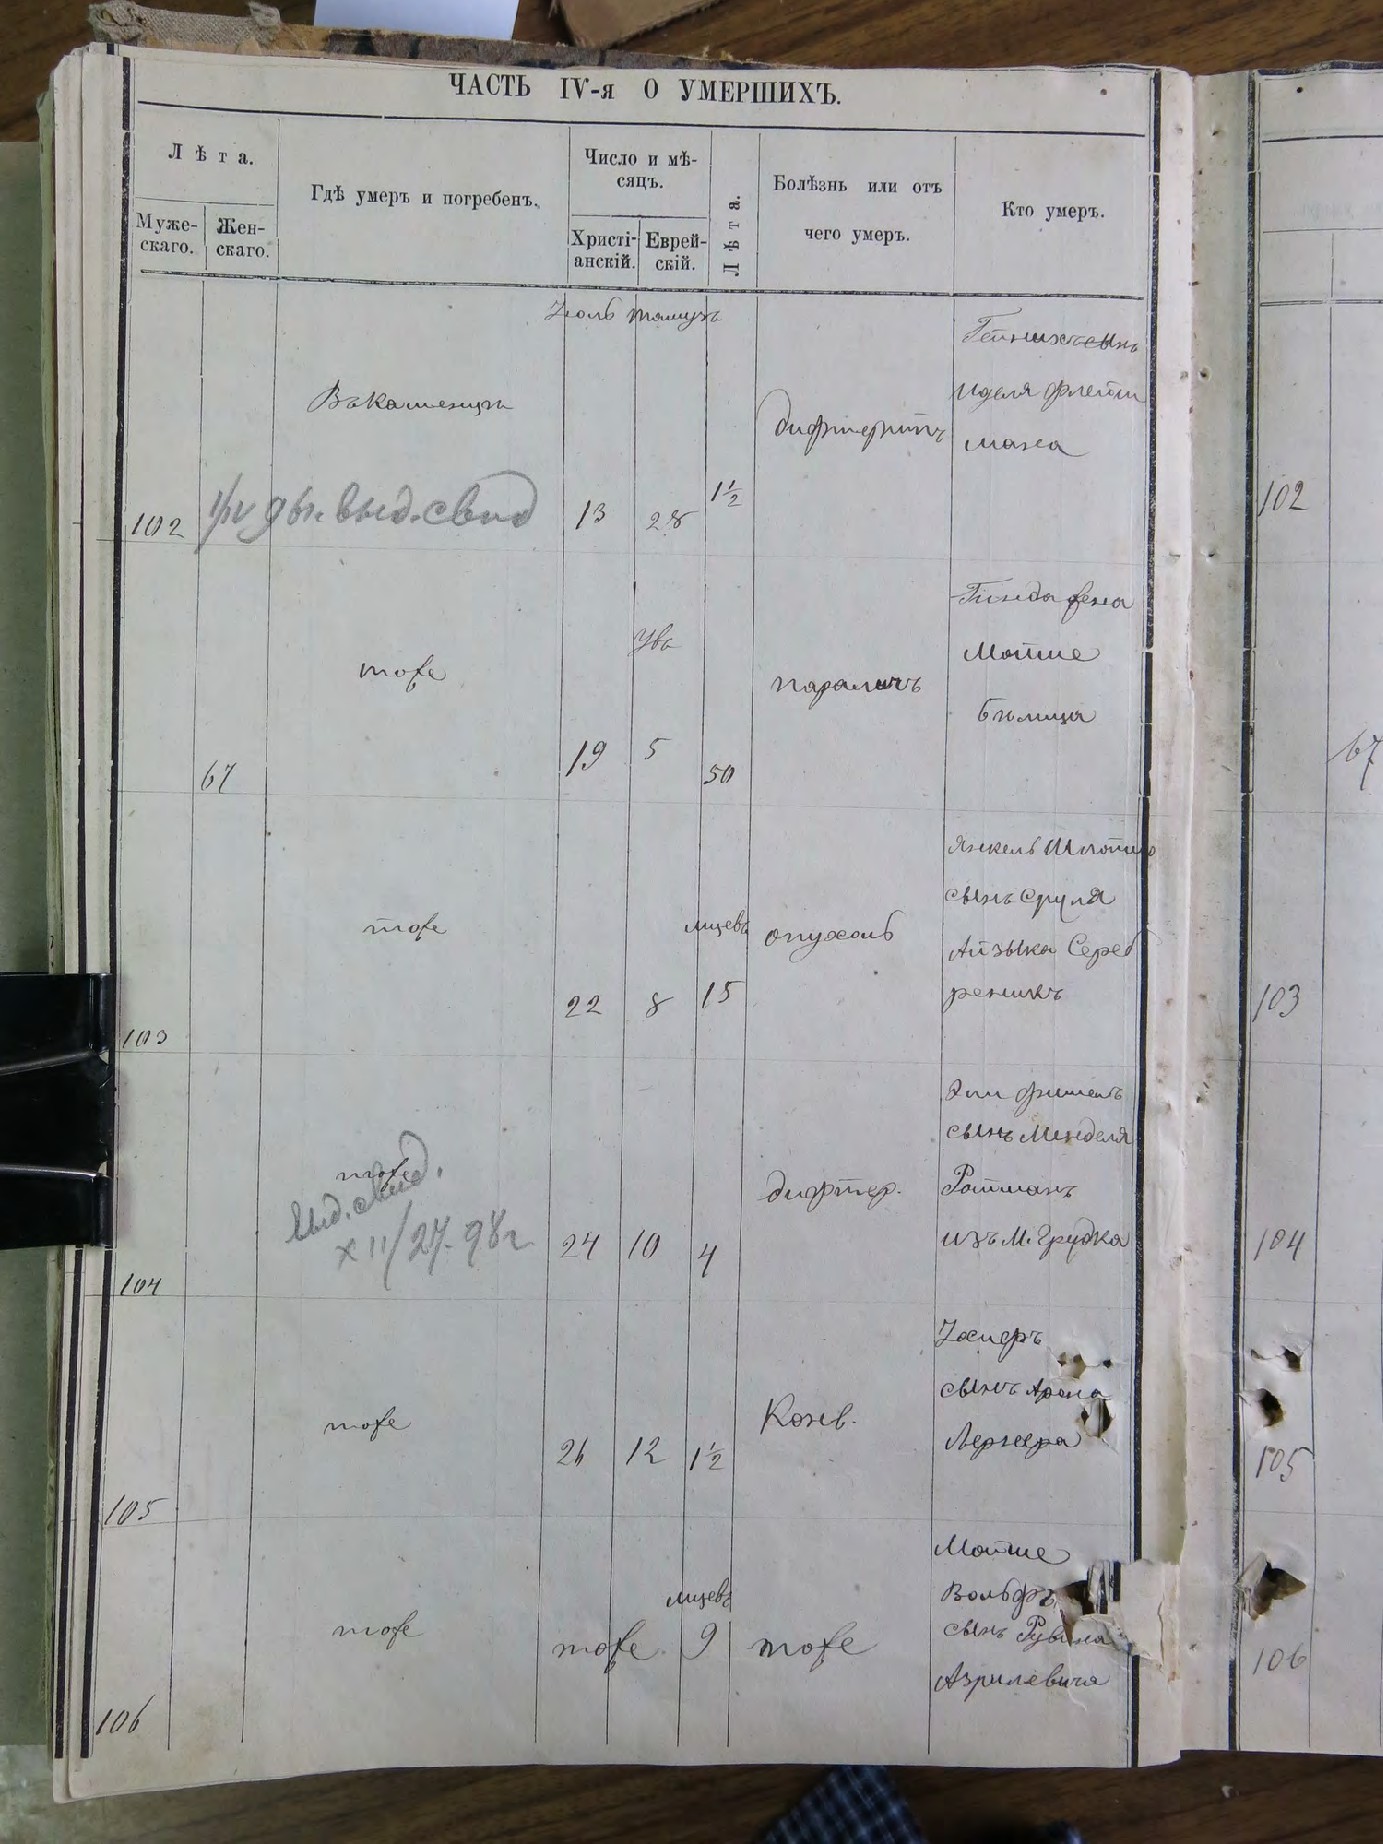 ЧАСТЬ IV-я О УМЕРШИХЪ.
Лѣта.
Муже-
скаго.
Жен-
скаго.
Гдѣ умеръ и погребенъ.
Число и мѣ-
сяцъ.
Христі-
анскій.
Еврей-
скій.
Лѣта.
Болѣзнь или отъ
чего умеръ.
Кто умеръ.
Іюль тамузъ
102
Въ Каменцѣ
выд. свид
13
28
1½
дифтеритъ
сынъ
Иделя Флейш
мана
102
67
тоже
19
Увъ
5
50
параличъ
Гинда жена
Мотше
Бѣлица
67
103
тоже
22
8
мцевъ
15
опухоль
Янкель
сынъ Сруля
Айзыка Сереб
реникъ
103
104
тоже
выд. свид.
XII/27-98г
24
10
4
дифтер.
Эли Фишель
сынъ Менделя
Ротманъ
изъ М. Грудка
104
105
тоже
26
12
1½
Конв.
сынъ Арона
Лернера
105
106
тоже
тоже
мцевъ
9
тоже
Мотше
Вольфъ
сынъ Рувина
Азрилевича
106